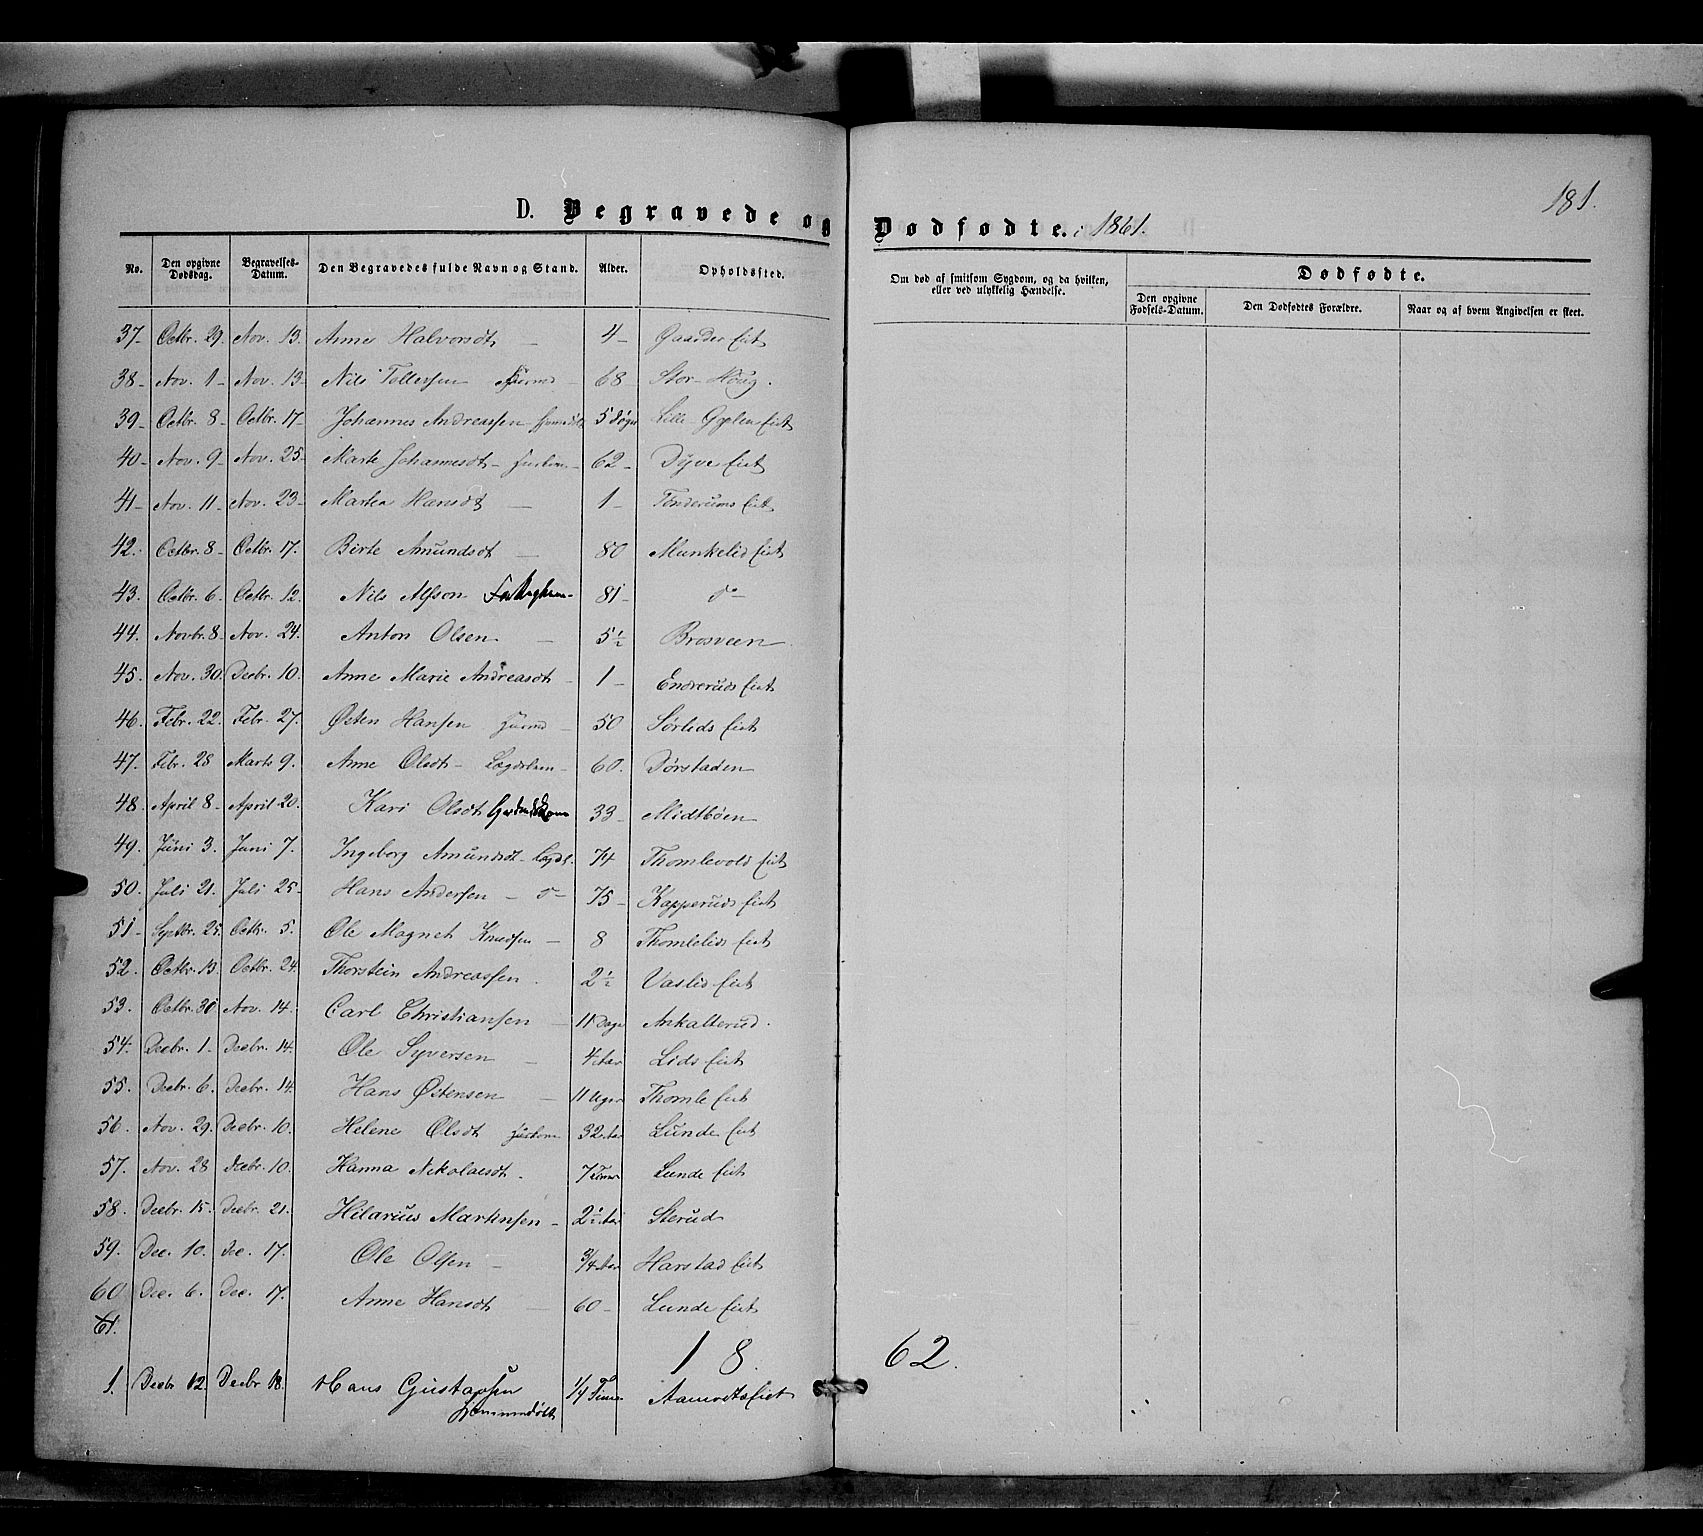 181.
D. Begravede og Dødfødte. i 1861.
No. Den opgivne Dødsdag. Begravelses-Datum. Den Begravedes fulde Navn og Stand. Alder. Opholdssted. Om død af smitsom Sygdom, og da hvilken, eller ved ulykkelig Hændelse. Dødfødte.
Den opgivne Fødsels-Datum. Den Dødfødtes Forældre. Naar og af hvem Angivelsen er skeet.
37- Octbr. 29. Nov. 13. Anne Halvorsdt - 4- Gaarder eiet
38- Nov. 1- Nov. 13- Nils Tollefsen - 68- Stor-Houg.
39- Octbr. 8- Octbr. 17- Johannes Andreassen 5 døgn Lille- eiet
40- Nov. 9- Nov. 25- Marte Johannesdt- 62- Dyve eiet
41- Nov. 11- Nov. 23- Marthea Hansdt - 1- Tonderums eiet
42. Octbr. 8- Octbr. 17. Birte Amundsdt - 80 Munkelid eiet
43. Octbr. 6. Octbr. 12. Nils Alfson 81- do-
44. Novbr. 8- Nov. 24. Anton Olsen - 5½ Brosveen.
45. Nov. 30. Decbr. 10. Anne Marie Andreasdt - 1- Endreruds eiet
46. Febr. 22. Febr. 27. Østen Hansen - 50 Sørlids eiet
47. Febr. 28 Marts 9. Anne Olsdt- Lægdslem- 60. Dørstaden
48. April 8- April 20. Kari Olsdt 33- Midtbøen
49. Juni 3. Juni 7. Ingeborg Amundsdt- Lægdsl. 74 Thomlevold eiet
50. Juli 21. Juli 25- Hans Andersen - do- 75- Kapperuds eiet
51- Septbr. 25. Octbr. 5. Ole Magnet Knudsen - 8 Thomlelids eiet
52. Octbr. 13. Octbr. 24. Thorstein Andreassen. 2½ Vaslid eiet
53. Octbr. 30 Nov. 14. Carl Christiansen - 11 Dage Ankalterud.
54. Decbr. 1. Decbr. 14. Ole Syversen - 4 Aar Lids eiet
55. Decbr. 6. Decbr. 14. Hans Østensen - 11 Uger Thomle eiet
56. Nov. 29. Decbr. 10. Helene Olsdt 32 Aar Lunde eiet
57. Nov. 28 Decbr. 10. Hanna Nikolaesdt. 7 Timer Lunde eiet
58. Decbr. 15. Decbr. 21. Hilarius Martinsen- 2½ Aar Sterud
59. Dec. 10. Dec. 17. Ole Olsen - 3/4 Aar Harstad eiet
60 Dec. 6. Dec. 17. Anne Hansdt - 60- Lunde eiet
61.
18 62.
1. Decbr 12. Decbr 18. Hans Gustavsen 1/4 Time Aamodts eiet
Hjemmedøbt